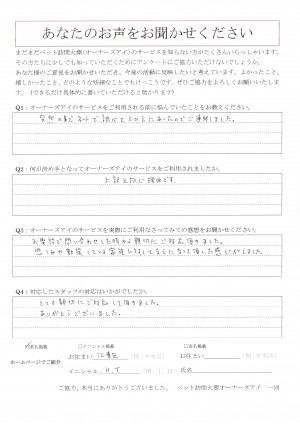 あなたのお声をお聞かせください
まだまだペット訪問火葬(オーナーズアイ)のサービスを知らない方がたくさんいらっしゃいます。
その方たちに少しでも知っていただくためにアンケートにご協力いただけないでしょうか。
あなた様のご意見をお聞かせいただき、今後の活動に反映したいと考えています。よかったこと、
嬉しかったこと、どのような些細なことでもけっこうです。ぜひご協力をよろしくお願いいたします。
(できるだけ具体的に書いていただけると助かります)
Q1:オーナーズアイのサービスをご利用される前に悩んでいたことをお教えください。
Q2:何が決め手となってオーナーズアイのサービスをご利用されましたか。
上記と同じ理由です。
Q3:オーナーズアイのサービスを実際にご利用なさってみての感想をお聞かせください。
お電話で問い合わせした時から親切にご対応頂きました。
Q4:対応したスタッフの対応はいかがでしたか。
とても親切にご対応して頂きました。
ありがとうございました。
ホームページでご紹介
イニシャル掲載
実名掲載
お住まい 江東区 (例:中央区)
お住まい (例:中央区)
イニシャル H.T
氏名
ご協力、本当にありがとうございました。 ペット訪問火葬オーナーズアイ 一同